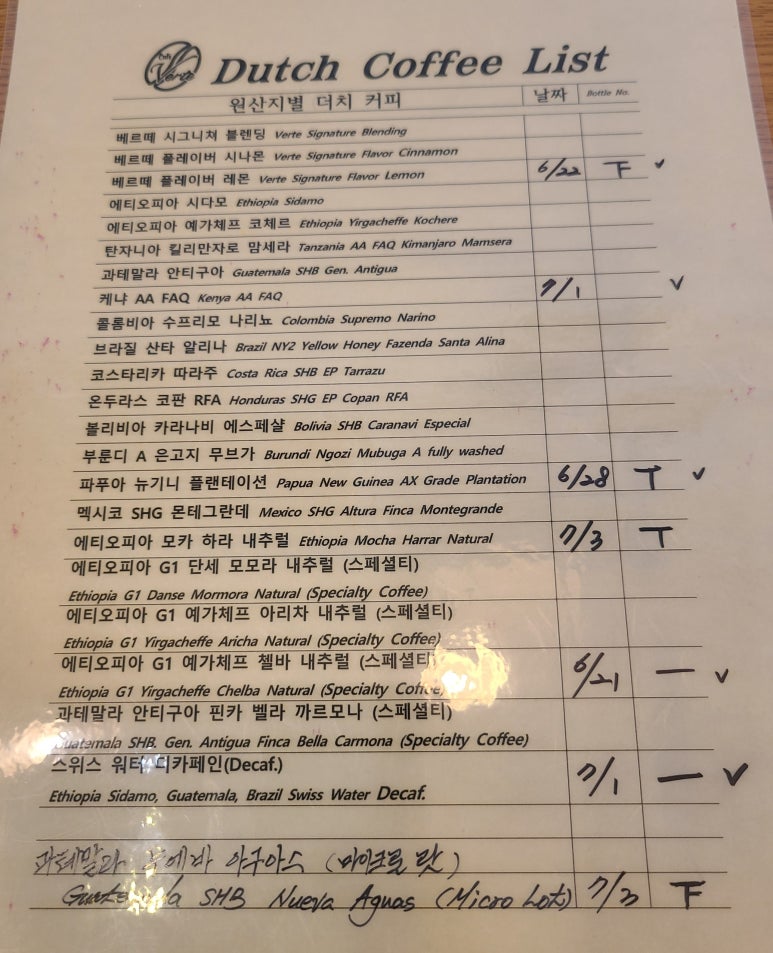 Verte Dutch Coffee List
원산지별 더치 커피 날짜 Bottle No.
베르떼 시그니쳐 블렌딩 Verte Signature Blending
베르떼 플레이버 시나몬 Verte Signature Flavor Cinnamon
베르떼 플레이버 레몬 Verte Signature Flavor Lemon 6/22 ㅜ ✓
에티오피아 시다모 Ethiopia Sidamo
에티오피아 예가체프 코체르 Ethiopia Yirgacheffe Kochere
탄자니아 AA FAQ 킬리만자로 맘세라 Tanzania AA FAQ Kimanjaro Mamsera
과테말라 안티구아 Guatemala SHB Gen. Antigua
케냐 AA FAQ Kenya AA FAQ 7/1 ✓
콜롬비아 수프리모 나리뇨 Colombia Supremo Narino
브라질 산타 알리나 Brazil NY2 Yellow Honey Fazenda Santa Alina
코스타리카 따라주 Costa Rica SHB EP Tarrazu
온두라스 코판 RFA Honduras SHG EP Copan RFA
볼리비아 카라나비 에스페샬 Bolivia SHB Caranavi Especial
부룬디 A 은고지 무브가 Burundi Ngozi Mubuga A fully washed
파푸아 뉴기니 플랜테이션 Papua New Guinea AX Grade Plantation 6/28 T ✓
멕시코 SHG 몬테그란데 Mexico SHG Altura Finca Montegrande
에티오피아 모카 하라 내추럴 Ethiopia Mocha Harrar Natural 7/3 T
에티오피아 G1 단세 모모라 내추럴 (스페셜티)
Ethiopia G1 Danse Mormora Natural (Specialty Coffee)
에티오피아 G1 예가체프 아리차 내추럴 (스페셜티)
Ethiopia G1 Yirgacheffe Aricha Natural (Specialty Coffee)
에티오피아 G1 예가체프 첼바 내추럴 (스페셜티)
Ethiopia G1 Yirgacheffe Chelba Natural (Specialty Coffee) 6/21 一 ✓
과테말라 안티구아 핀카 벨라 까르모나 (스페셜티)
Guatemala SHB. Gen. Antigua Finca Bella Carmona (Specialty Coffee)
스위스 워터 디카페인(Decaf.)
Ethiopia Sidamo, Guatemala, Brazil Swiss Water Decaf. 7/1 一 ✓
과테말라 누에바 아구아스 (마이크로 랏)
Guatemala SHB Nueva Aguas (Micro Lot) 7/3 下